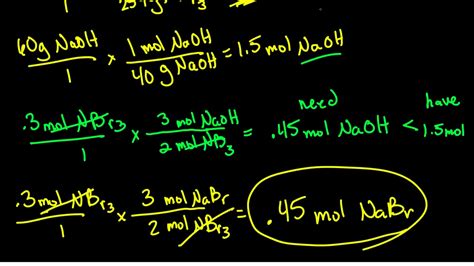 1
60g NaOH / 1 × 1 mol NaOH / 40 g NaOH = 1.5 mol NaOH
need have
.3 mol NBr3 / 1 × 3 mol NaOH / 2 mol NBr3 = .45 mol NaOH < 1.5 mol
.3 mol NBr3 / 1 × 3 mol NaBr / 2 mol NBr3 = .45 mol NaBr